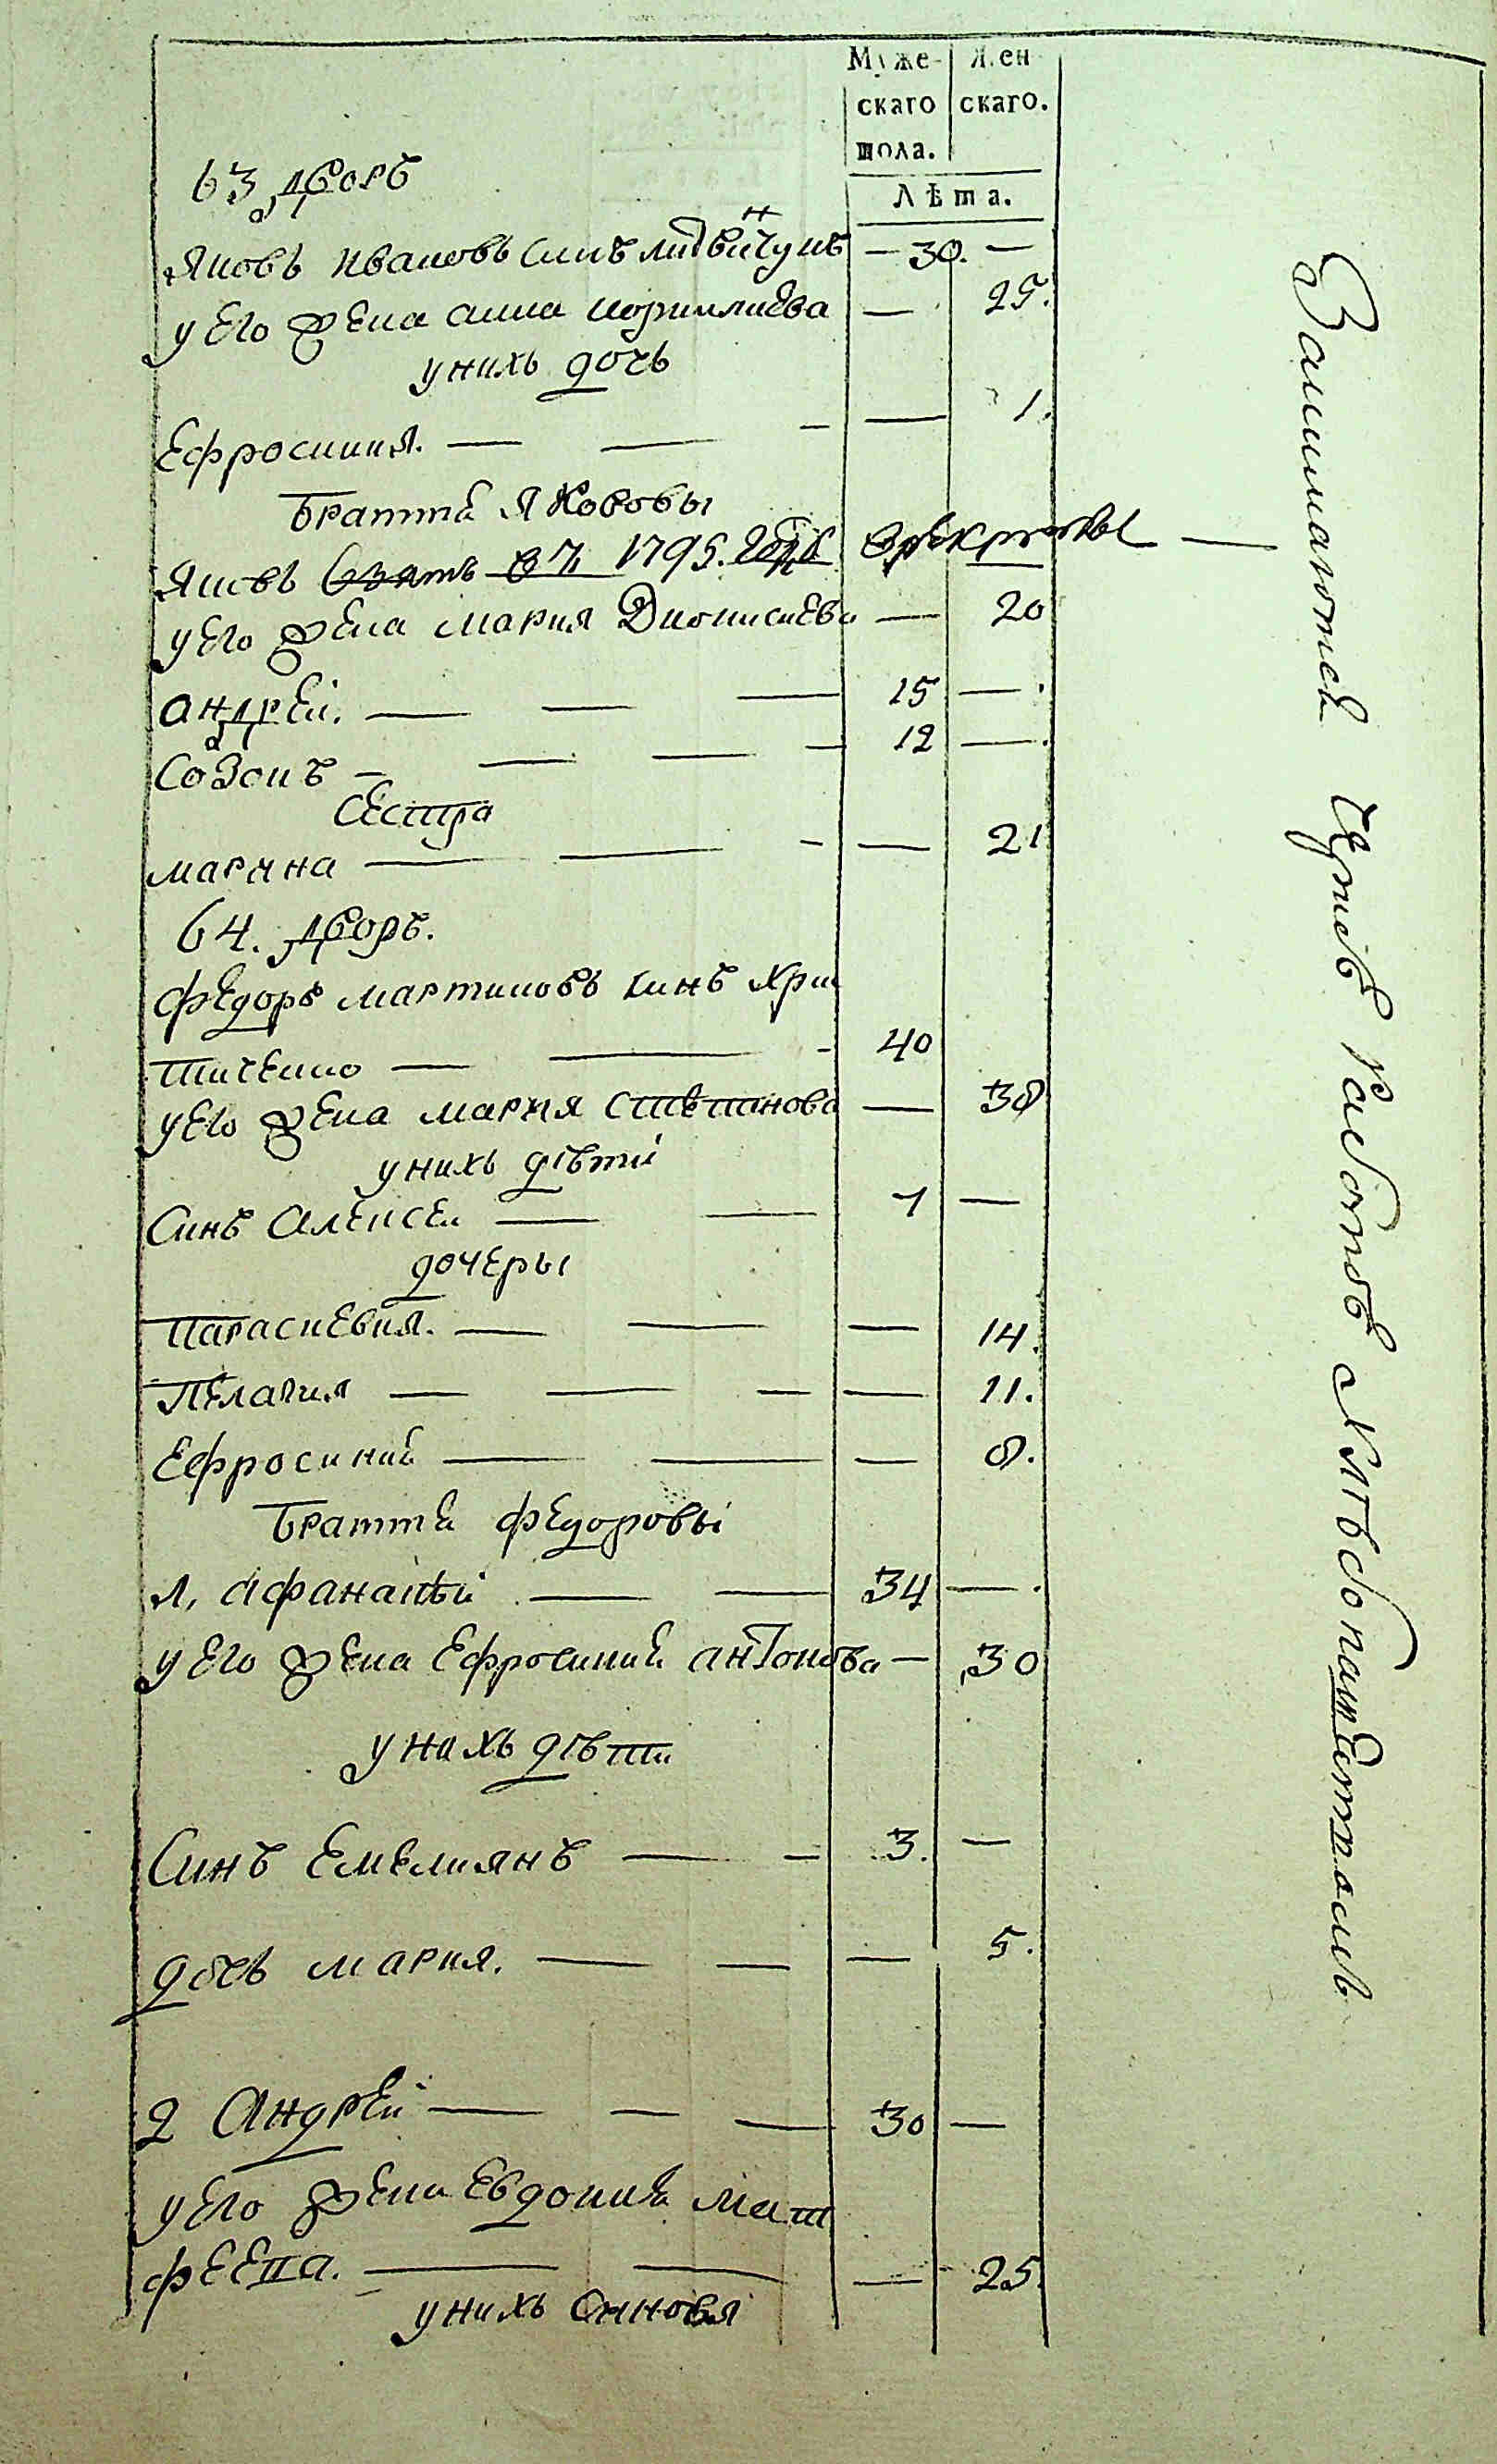 Муже- Жен
скаго скаго.
пола.
Лѣта.
63 дворъ
Яковъ Ивановъ синъ литвинчукъ — 30. —
у его жена анна корниллиева — 25.
у нихъ дочь
Ефросиния. — — — — 1.
Братти Яковові
Яковъ взятъ въ 1795. годѣ врекруты —
у его жена Мария Дионисиева — 20
андреи. — — — 15 — .
Созонъ — — — — 12 — .
Сестра
марина — — — — 21
64. дворъ.
федоръ мартиновъ синъ Хри
стиченко — — — 40
у его жена мария стѣпанова — 38
у нихъ дѣти
Синъ алексеи — — 7 —
дочеры
Параскевия. — — — 14.
Пелагия — — — — 11.
Ефросиния — — — 8.
Братти федорові
1, афанасѣи — — 34 — .
у его жена Ефросиния антонова — 30
у нихъ дѣти
Синъ Емелиянъ — — 3. —
дочь мария. — — — 5.
2 Андреи — — — 30 —
у его жена Евдокия мат
феева. — — — 25.
у нихъ синновя
Занимаютси